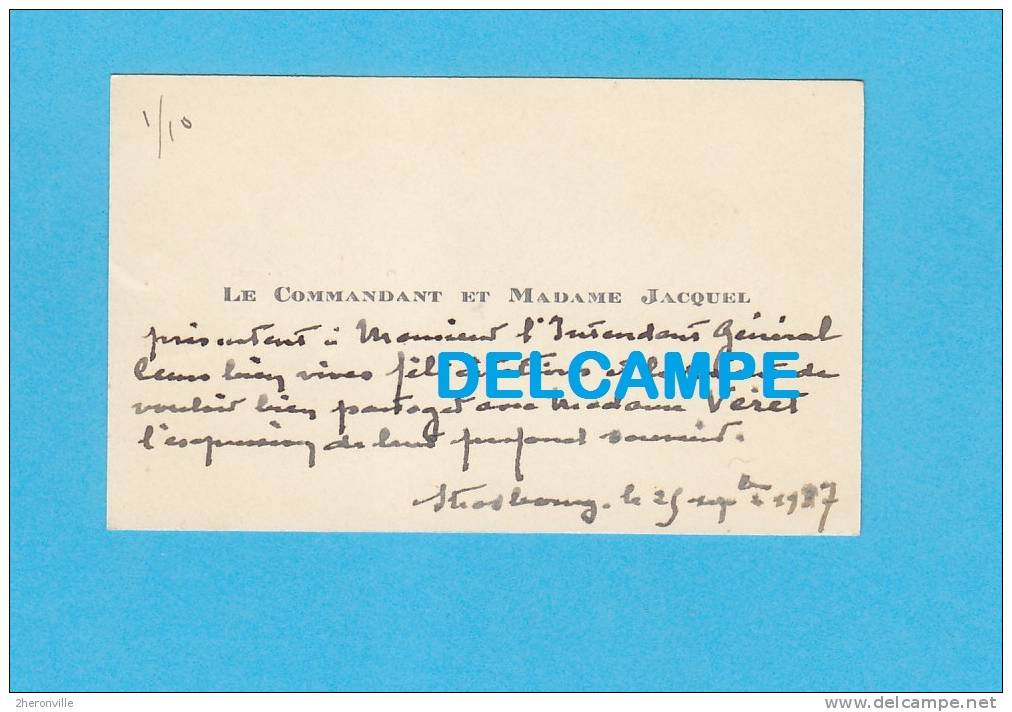 1/10
LE COMMANDANT ET MADAME JACQUEL
présentent à Monsieur l'Intendant Général
leurs bien vives félicitations et le de
DELCAMPE
vouloir bien partager avec Madame Veret
l'expression de leur profond souvenir.
Strasbourg, le 25 sepbre 1937
2heronville
www.delcampe.net